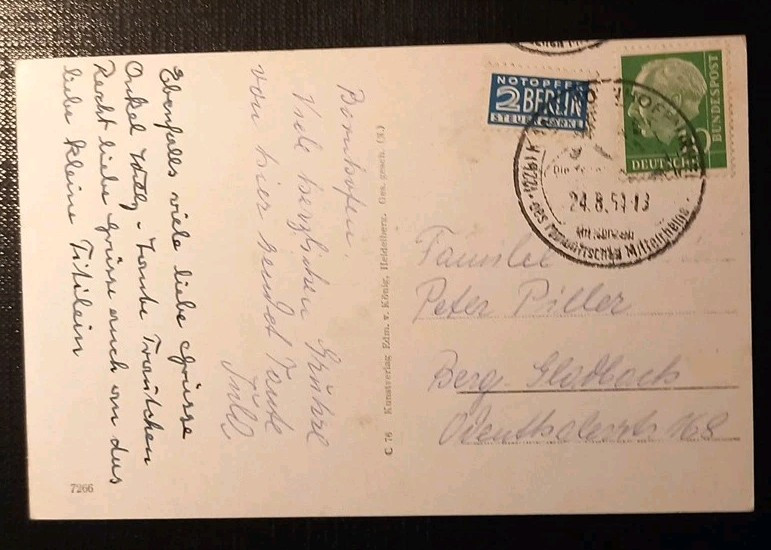 Bornhofen.
Viele herzlichen Grüße
von hier sendet Tante
Ebenfalls viele liebe Grüsse
Onkel Willy - Tante Trautchen
Recht liebe Grüsse auch an das
liebe kleine Titilein
7266
C 76 Kunstverlag Edm. v. König, Heidelberg. Ges. gesch. (K)
NOTOPFER
2 BERLIN
STEUERMARKE
DEUTSCHE
BUNDESPOST
24.8.54-13
des romantischen Mittelrheins
Familie
Peter Piller
Berg-Gladbach
Odenthalerstr. 168